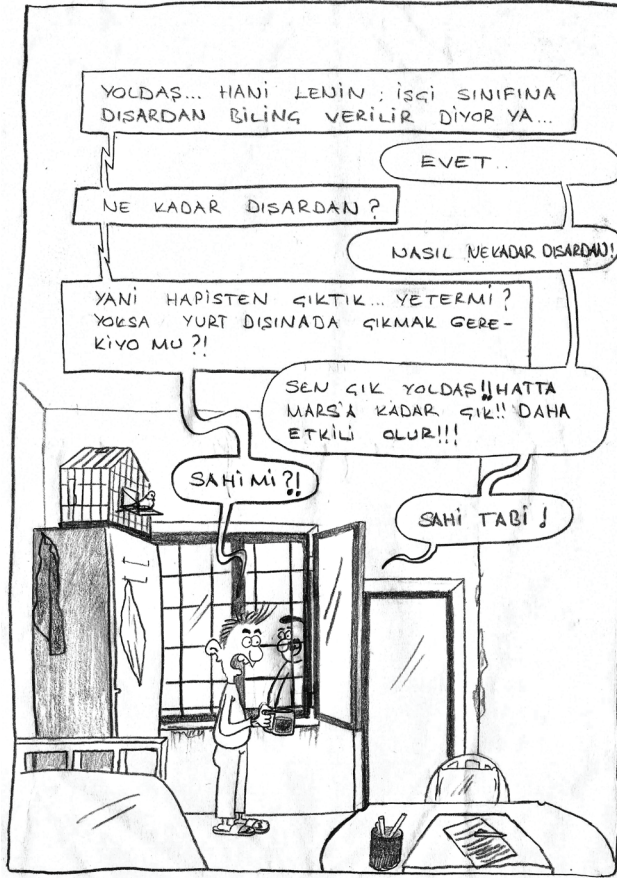 YOLDAŞ... HANİ LENİN ; İŞÇİ SINIFINA
DISARDAN BİLİNÇ VERİLİR DİYOR YA...
EVET..
NE KADAR DISARDAN?
NASIL NEKADAR DISARDAN!
YANİ HAPİSTEN ÇIKTIK... YETERMİ?
YOKSA YURT DISINADA ÇIKMAK GERE-
KİYO MU?!
SEN ÇIK YOLDAŞ!! HATTA
MARS'A KADAR ÇIK!! DAHA
ETKİLİ OLUR!!!
SAHİ Mİ?!
SAHİ TABİ!